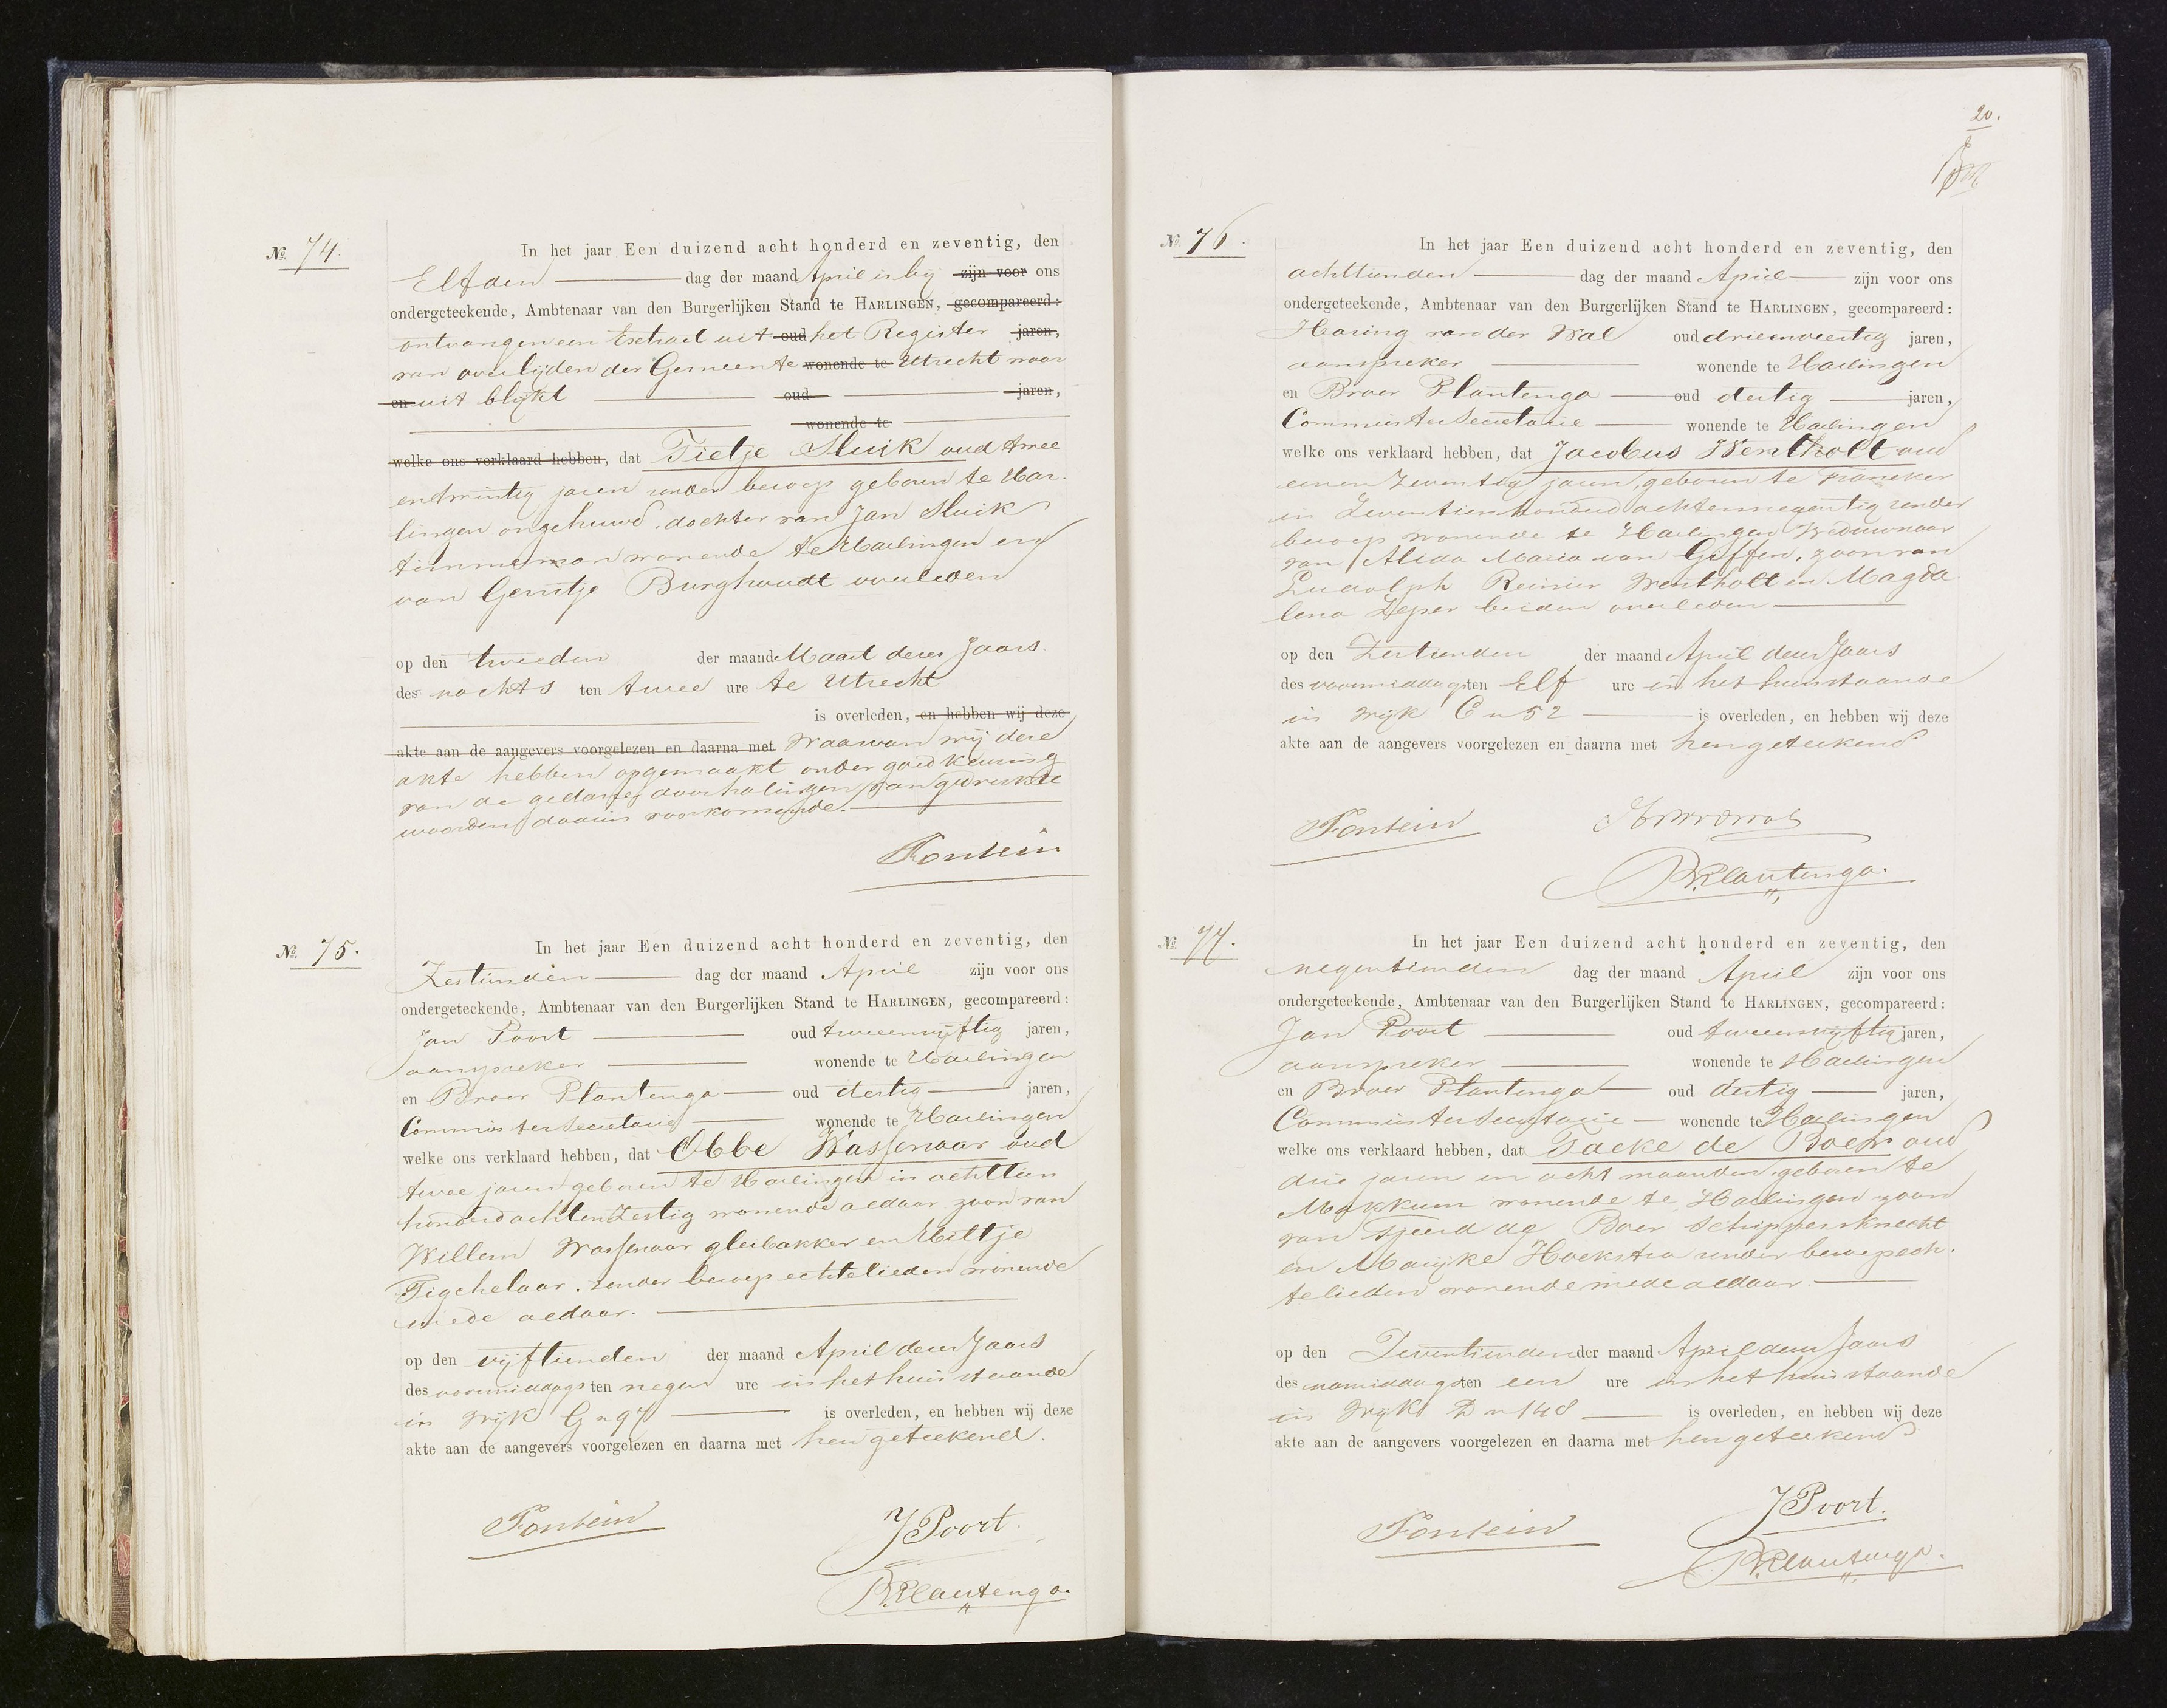 No. 74.
In het jaar Een duizend acht honderd en zeventig, den
Elfden dag der maand April is bij zijn voor ons
ondergeteekende, Ambtenaar van den Burgerlijken Stand te HARLINGEN, gecompareerd:
ontvangen een Extract uit oud het Register jaren,
van overlijden der Gemeente wonende te Utrecht waar
en uit blijkt oud jaren,
wonende te
welke ons verklaard hebben, dat Tietje Sluik oud twee
entwintig jaren zonder beroep geboren te Har-
lingen ongehuwd, dochter van Jan Sluik
timmerman wonende te Harlingen en
van Gerritje Burghoudt overleden
op den tweeden der maand Maart dezes Jaars
des nachts ten twee ure te Utrecht
is overleden, en hebben wij deze
akte aan de aangevers voorgelezen en daarna met Waarvan wij deze
akte hebben opgemaakt onder goedkeuring
van de gedane doorhalingen van gedrukte
woorden daarin voorkomende.
Fontein
No. 75.
In het jaar Een duizend acht honderd en zeventig, den
Zestienden dag der maand April zijn voor ons
ondergeteekende, Ambtenaar van den Burgerlijken Stand te HARLINGEN, gecompareerd:
Jan Poort oud tweeenvijftig jaren,
aanspreker wonende te Harlingen
en Broer Plantenga oud dertig jaren,
Commies ter Secretarie wonende te Harlingen
welke ons verklaard hebben, dat Obbe Wassenaar oud
twee jaren geboren te Harlingen in achttien
honderd achtenzestig wonende aldaar zoon van
Willem Wassenaar gleibakker en Hiltje
Tigchelaar, zonder beroep echtelieden wonende
mede aldaar.
op den vijftienden der maand April dezes Jaars
des voormiddags ten negen ure in het huis staande
in Wijk G n 97 is overleden, en hebben wij deze
akte aan de aangevers voorgelezen en daarna met hen geteekend.
Fontein
J Poort
B. Plantenga.
20.
No. 76.
In het jaar Een duizend acht honderd en zeventig, den
achttienden dag der maand April zijn voor ons
ondergeteekende, Ambtenaar van den Burgerlijken Stand te HARLINGEN, gecompareerd:
Haring van der Wal oud drieenveertig jaren,
aanspreker wonende te Harlingen
en Broer Plantenga oud dertig jaren,
Commies ter Secretarie wonende te Harlingen
welke ons verklaard hebben, dat Jacobus Wentholt oud
eenenzeventig jaren, geboren te Franeker
in Zeventienhonderd achtennegentig zonder
beroep wonende te Harlingen Weduwnaar
van Alida Maria van Giffen, zoon van
Ludolph Reinier Wentholt en Magda
lena Zeper beiden overleden
op den Zestienden der maand April dezes Jaars
des voormiddags ten Elf ure in het huis staande
in Wijk C n 52 is overleden, en hebben wij deze
akte aan de aangevers voorgelezen en daarna met hen geteekend
Fontein
B. Plantenga.
No. 77.
In het jaar Een duizend acht honderd en zeventig, den
negentienden dag der maand April zijn voor ons
ondergeteekende, Ambtenaar van den Burgerlijken Stand te HARLINGEN, gecompareerd:
Jan Poort oud tweeenvijftig jaren,
aanspreker wonende te Harlingen
en Broer Plantenga oud dertig jaren,
Commies ter Secretarie wonende te Harlingen
welke ons verklaard hebben, dat Taeke de Boer oud
drie jaren en acht maanden, geboren te
Makkum wonende te Harlingen zoon
van Sjoerd de Boer Schippersknecht
en Marijke Hoekstra zonder beroep ech-
telieden wonende mede aldaar.
op den Zeventienden der maand April dezes Jaars
des namiddags ten een ure in het huis staande
in Wijk D n 148 is overleden, en hebben wij deze
akte aan de aangevers voorgelezen en daarna met hen geteekend
Fontein
J Poort.
B. Plantenga.